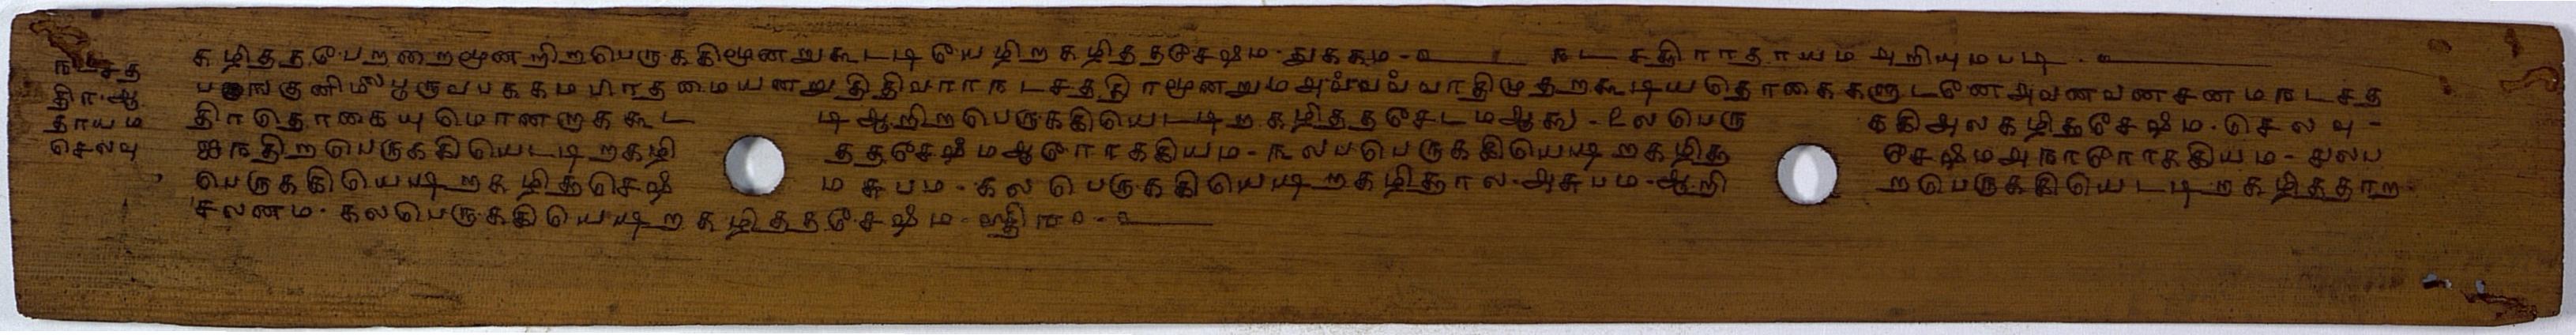 நடசத
திர ஆ
தாயம
செலவு
கழித்தபேறறைமூனறிறபெருக்கிமூனறுகூடடியேழிறகழித்தசேஷம-துக்கம-உ நடசத்திராதாயம அறியுமபடி-உ
பஙகுனிமீபூருவபக்கமபிரதமையனறுதிதிவாரநடசத்திரமூனறும முதறகூடியதொகைகளுடனேஅவனவனசனமநடசத
திரதொகையுமொனறாகக்கூட டிஆறிறபெருக்கியெடடிறகழித்தசேடமஆகு-உலபெரு க்கிஅலகழித்தசேஷம-செலவு-
ஐநதிறபெருக்கியெடடிறகழி த்தசேஷமஆரோக்கியம-நலபெருக்கியெடடிறகழித்த சேஷமஅநாரோக்கியம-
பெருக்கியெடடிறகழித்தசெஷ ம சுபம-கலபெருக்கியெடடிறகழித்தால-அசுபம-ஆறி றபெருக்கியெடடிறகழித்தாற
சலனம-கலபெருக்கியெடடிறகழித்தசேஷம-ஸ்திரம-உ